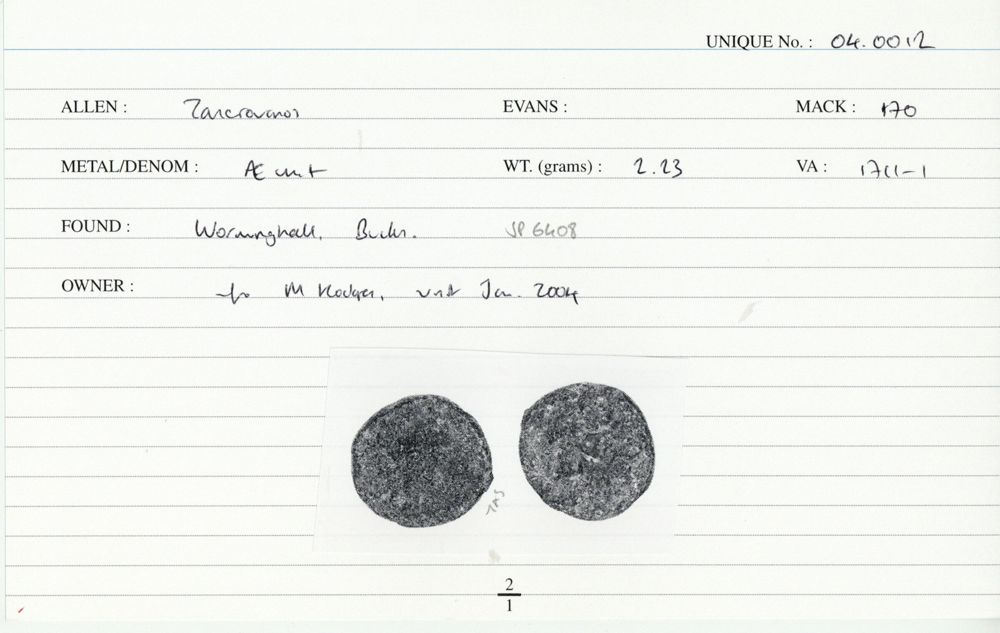 UNIQUE No. : 04.0012
ALLEN : Tasciovanos EVANS : MACK : 170
METAL/DENOM : Æ unit WT. (grams) : 2.23 VA : 1711-1
FOUND : Worminghall, Bucks. SP 6408
OWNER : M Hodges, visit Jan. 2004
2
1